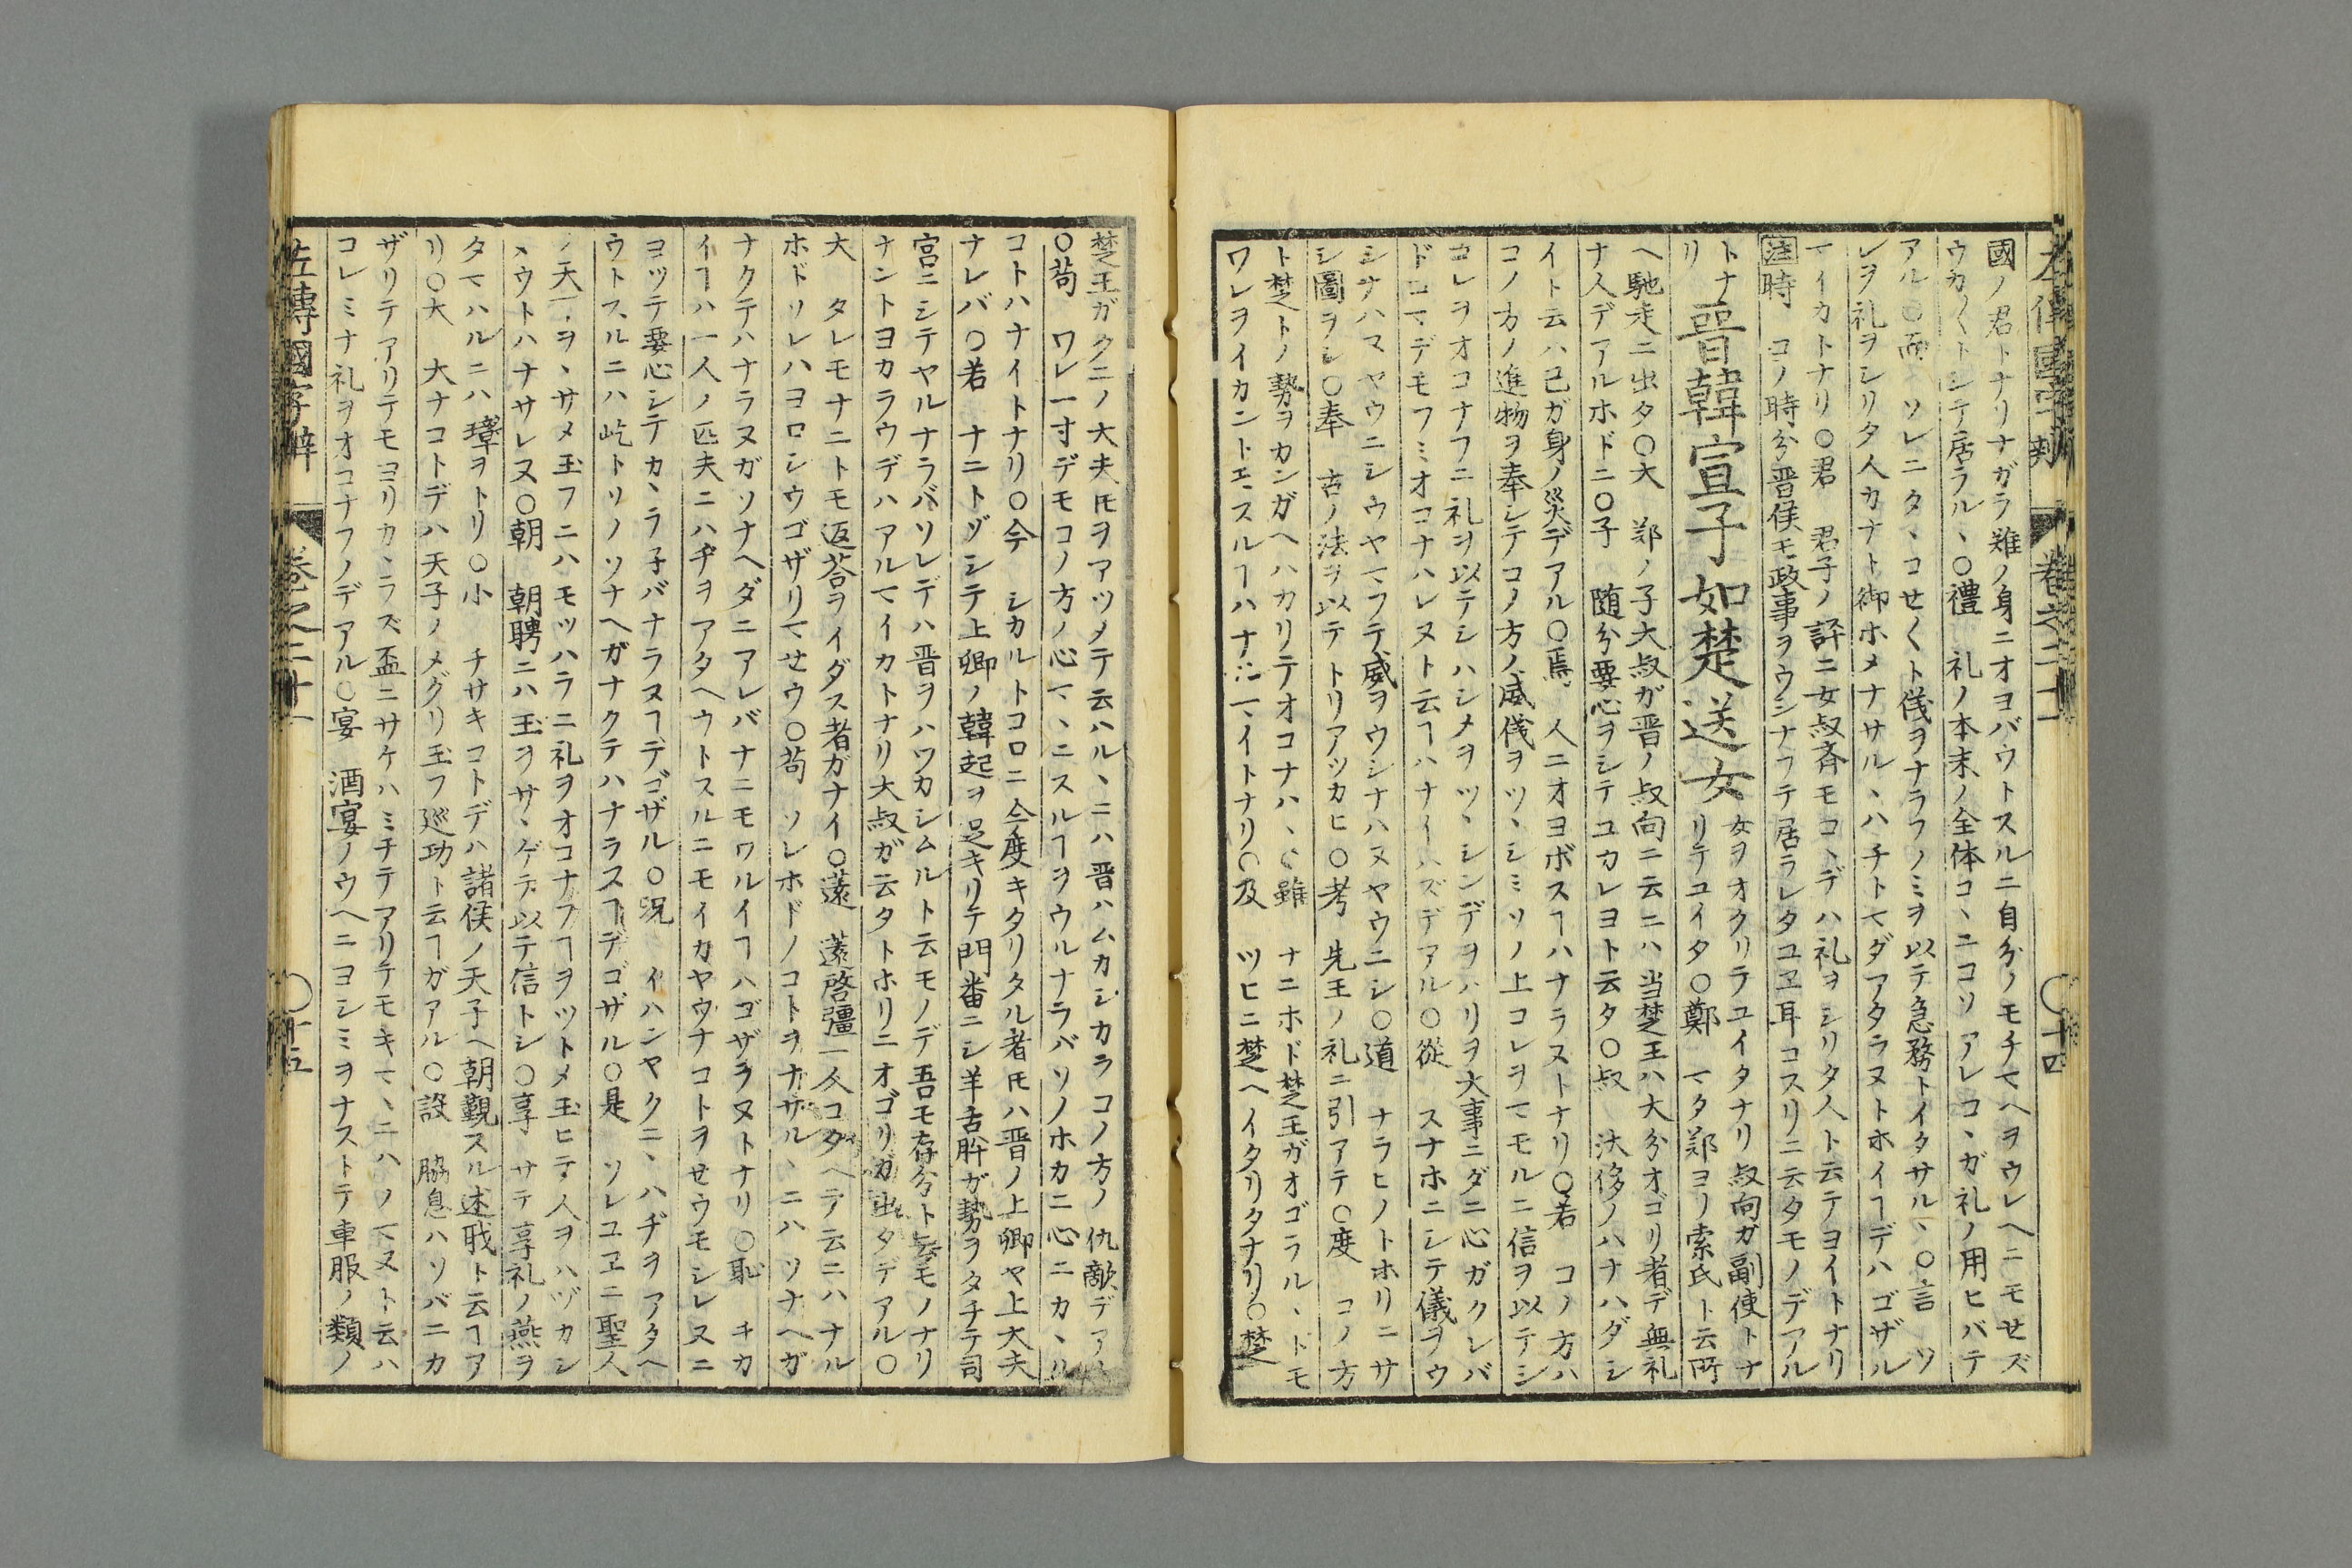 國ノ君トナリナガラ難ノ身ニオヨバウトスルニ自分ノモチマヘヲウレヘニモセズ
ウカ〱トシテ居ラル丶○禮 礼ノ本末ノ全体コ丶ニコソアレコ丶ガ礼ノ用ヒバテ
アル○而 ソレニタ丶コセ〱ト儀ヲナラフノミヲ以テ急務トイタサル丶○言 ソ
レヲ礼ヲシリタ人カナト御ホメナサル丶ハチトマダアタラヌトホイヿデハゴザル
マイカトナリ○君 君子ノ評ニ女叔斉モコ丶デハ礼ヲシリタ人ト云テヨイトナリ
注時 コノ時分晋侯モ政事ヲウシナフテ居ラレタユヱ耳コスリニ云タモノデアル
トナリ
晋韓宣子如楚送女
女ヲオクリテユイタナリ叔向ガ副使トナ
リテユイタ○鄭 マタ郑ヨリ索氏ト云所
ヘ馳走ニ出タ○大 郑ノ子大叔ガ晋ノ叔向ニ云ニハ当楚王ハ大分オゴリ者デ無礼
ナ人デアルホドニ○子 随分要心ヲシテユカレヨト云タ○叔 汰侈ノハナハダシ
イト云ハ己ガ身ノ災デアル○焉 人ニオヨボスヿハナラヌトナリ○若 コノ方ハ
コノ方ノ進物ヲ奉シテコノ方ノ威儀ヲツ丶シミソノ上コレヲマモルニ信ヲ以テシ
コレヲオコナフニ礼ヲ以テシハシメヲツ丶シンデヲハリヲ大事ニダニ心ガクレバ
ドコマデモフミオコナハレヌト云ヿハナイハズデアル○從 スナホニシテ儀ヲウ
シナハヌヤウニシウヤマフテ威ヲウシナハヌヤウニシ○道 ナラヒノトホリニサ
シ圖ヲシ○奉 古ノ法ヲ以テトリアツカヒ○考 先王ノ礼ニ引アテ○度 コノ方
ト楚トノ勢ヲカンガヘハカリテオコナハ丶○雖 ナニホド楚王ガオゴラル丶ドモ
ワレヲイカントエスルヿハナルマイトナリ○及 ツヒニ楚ヘイタリタナリ○楚
楚王ガクニノ大夫𪜈ヲアツメテ云ハル丶ニハ晋ハムカシカラコノ方ノ仇敵デアル
○苟 ワレ一寸デモコノ方ノ心マ丶ニスルヿヲウルナラバソノホカニ心ニカ丶ル
コトハナイトナリ○今 シカルトコロニ今度キタリタル者𪜈ハ晋ノ上卿ヤ上大夫
ナレバ○若 ナニトゾシテ上卿ノ韓起ヲ足キリテ門番ニシ羊舌肸ガ勢ヲタチテ司
宮ニシテヤルナラバソレデハ晋ヲハツカシムルト云モノデ吾モ存分ト云モノナリ
ナントヨカラウデハアルマイカトナリ大叔ガ云タトホリニオゴリガ出タデアル○
大 タレモナニトモ返荅ヲイダス者ガナイ○薳 薳啓彊一人コタヘテ云ニハナル
ホドソレハヨロシウゴザリマセウ○苟 ソレホドノコトヲナサル丶ニハソナヘガ
ナクテハナラヌガソナヘダニアレバナニモワルイヿハゴザラヌトナリ○恥 チカ
イヿハ一人ノ匹夫ニハヂヲアタヘウトスルニモイカヤウナコトヲセウモシレヌニ
ヨツテ要心シテカ丶ラ子バナラヌヿデゴザル○況 イハンヤクニ丶ハヂヲアタヘ
ウトスルニハ屹トソノソナヘガナクテハナラヌヿデゴザル○是 ソレユヱニ聖人
ノ天下ヲ丶サメ玉フニハモツハラニ礼ヲオコナフヿヲツトメ玉ヒテ人ヲハヅカシ
メウトハナサレヌ○朝 朝聘ニハ玉ヲサ丶ゲテ以テ信トシ○享 サテ享礼ノ燕ヲ
タマハルニハ璋ヲトリ○小 チサキコトデハ諸侯ノ天子ヘ朝觀スル述職ト云ヿア
リ○大 大ナコトデハ天子ノメグリ玉フ巡功ト云ヿガアル○設 脇息ハソバニカ
ザリテアリテモヨリカ丶ラズ盃ニサケハミチテアリテモキマ丶ニハノマヌト云ハ
コレミナ礼ヲオコナフノデアル○宴 酒宴ノウヘニヨシミヲナストテ車服ノ類ノ
左傳國字辯 卷之二十一 ○十五